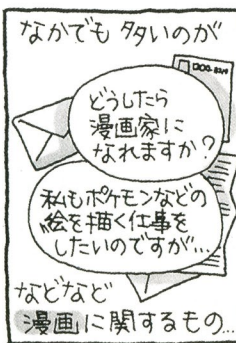 なかでも多いのが
どうしたら
漫画家に
なれますか?
私もポケモンなどの
絵を描く仕事を
したいのですが…
などなど
漫画に関するもの…